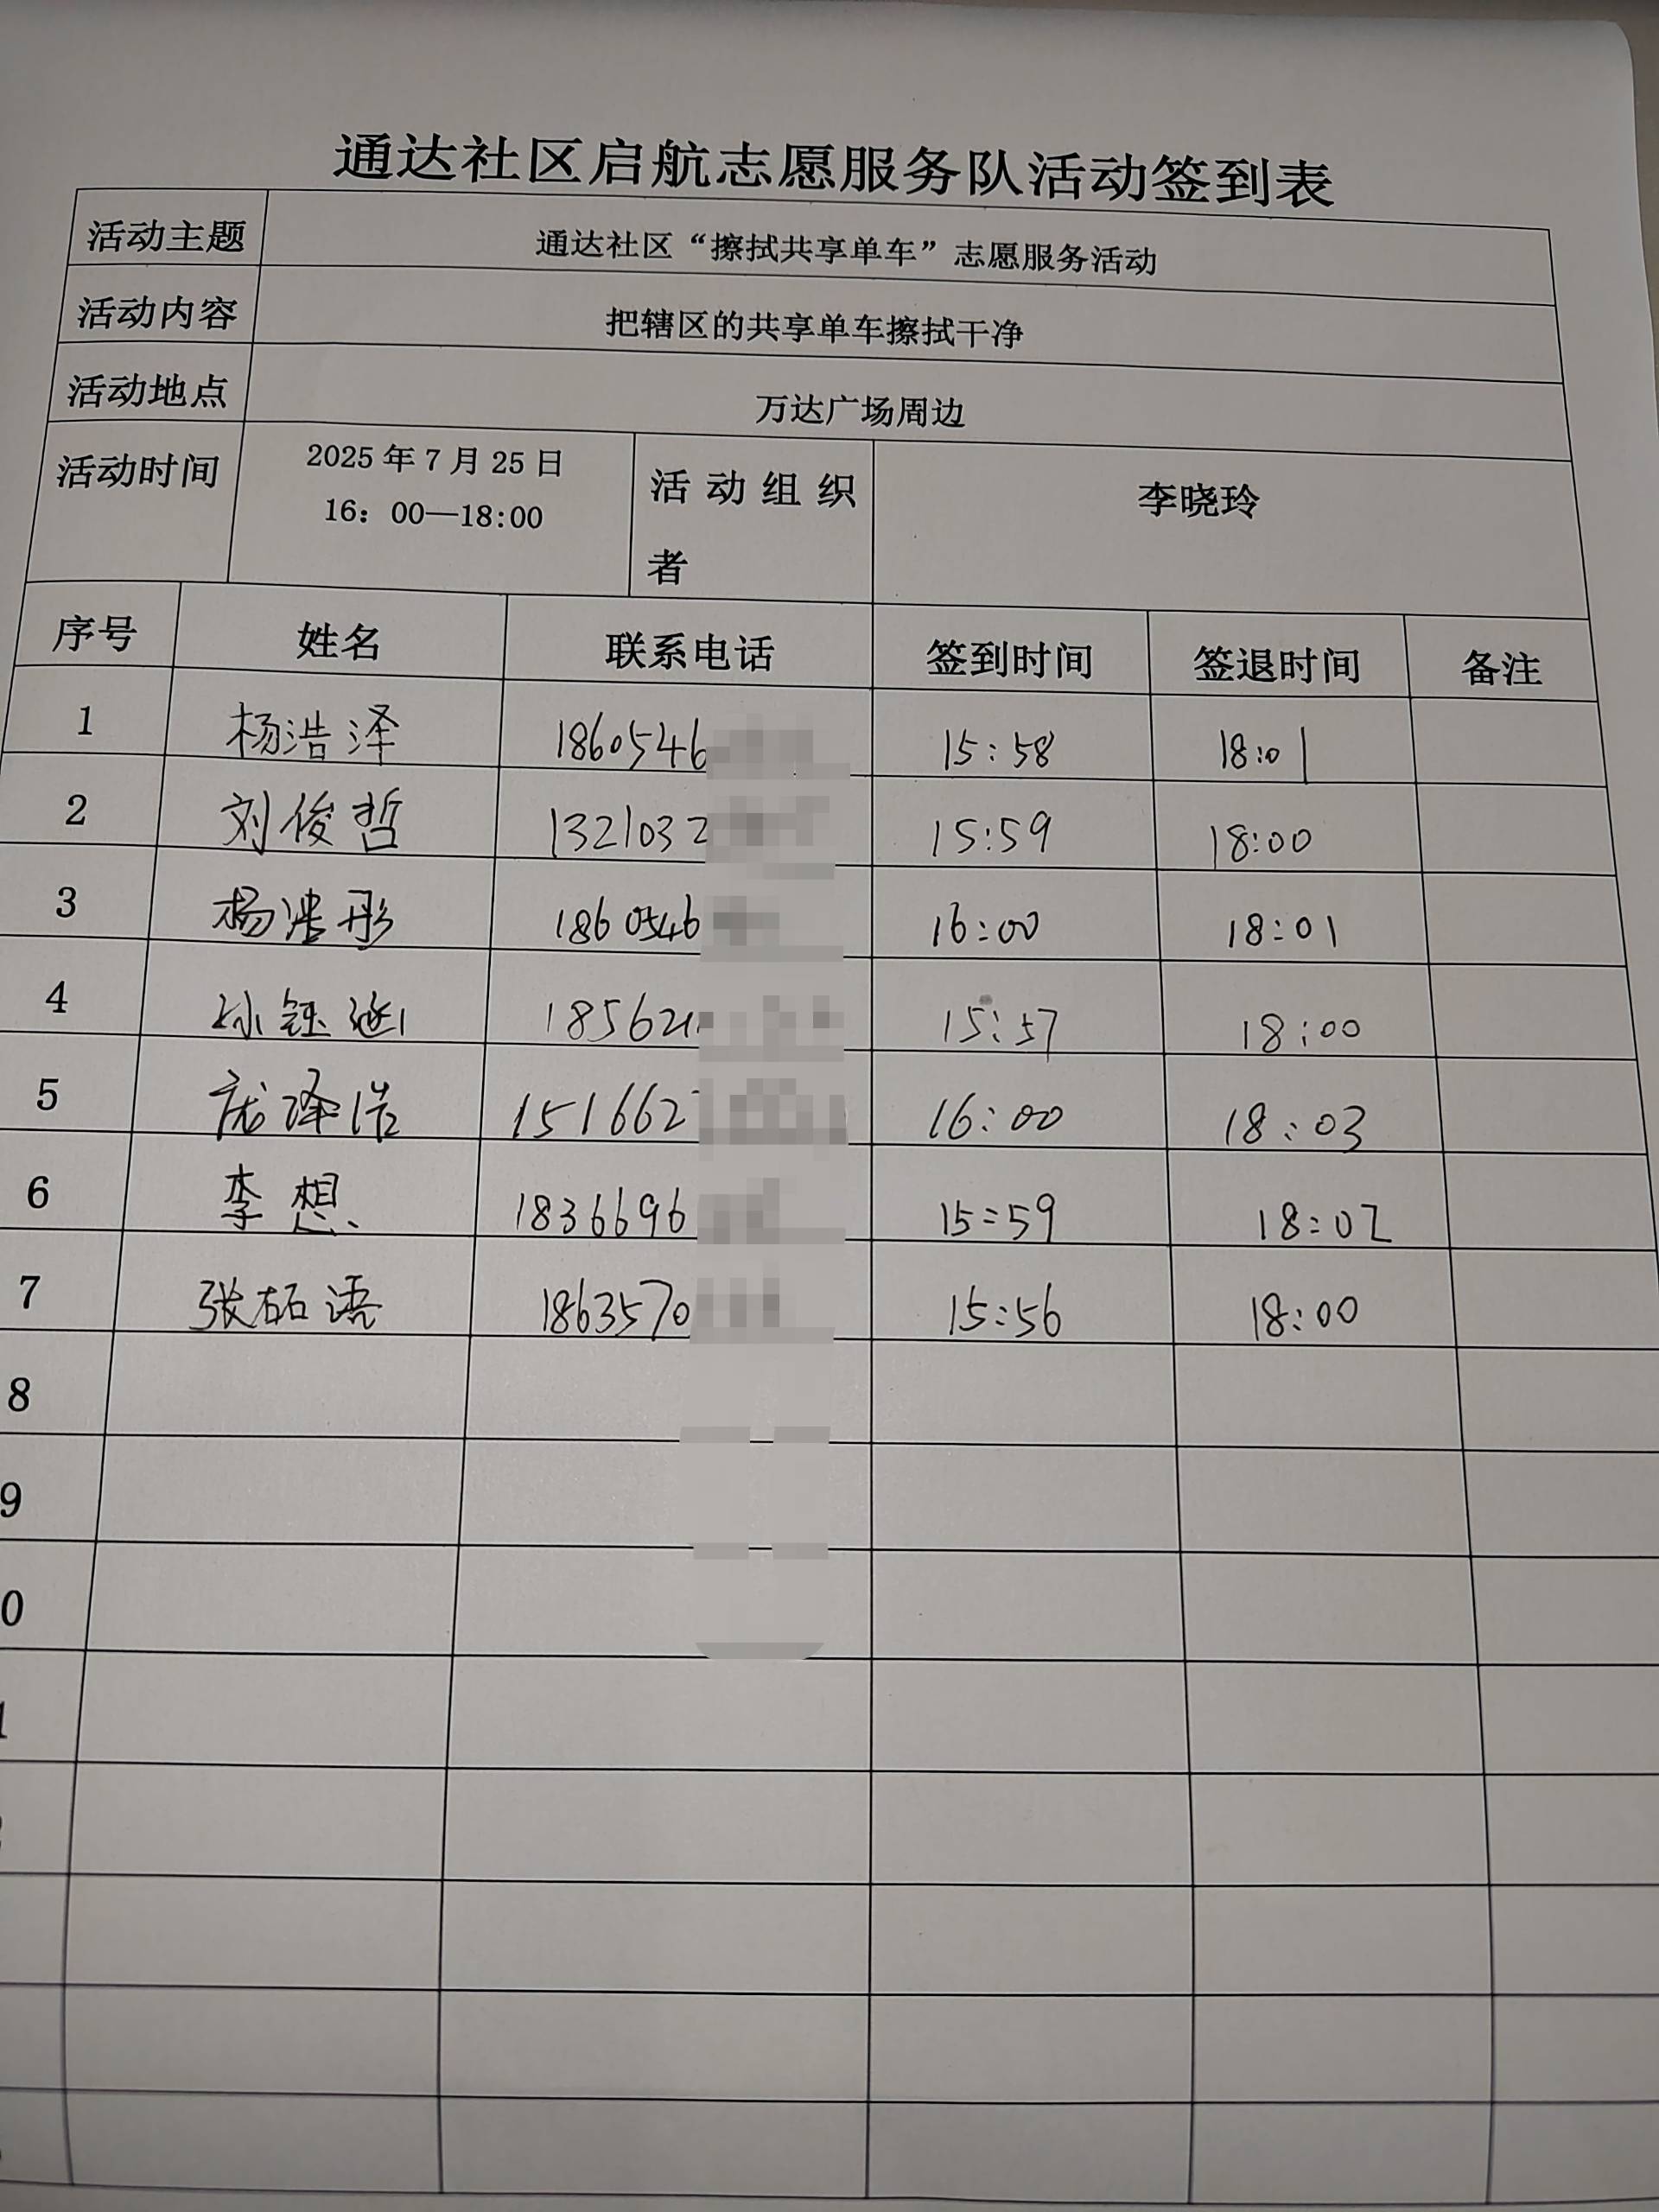 通达社区启航志愿服务队活动签到表
活动主题 通达社区“擦拭共享单车”志愿服务活动
活动内容 把辖区的共享单车擦拭干净
活动地点 万达广场周边
活动时间 2025年7月25日 16：00—18:00 活动组织者 李晓玲
序号 姓名 联系电话 签到时间 签退时间 备注
1 杨浩泽 1860546 15:58 18:01
2 刘俊哲 1321032 15:59 18:00
3 杨浩彤 1860546 16:00 18:01
4 孙钰涵 185621 15:57 18:00
5 庞泽浩 1516627 16:00 18:03
6 李想 1836696 15:59 18:02
7 张砳语 1863570 15:56 18:00
8
9
0
1